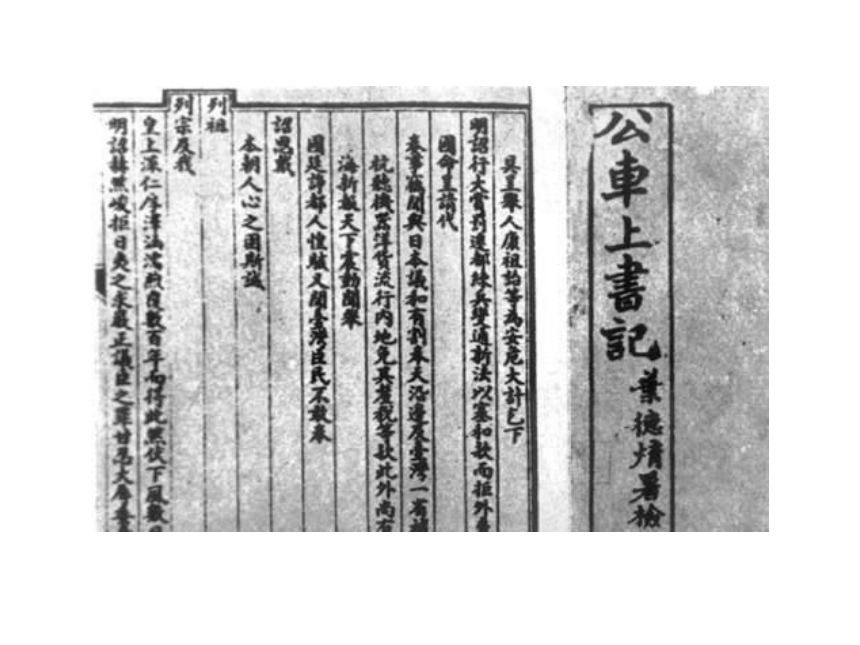 公車上書記
葉德署檢
具呈舉人康祖詒等為安危大計乞下
明詔行大賞罰遷都練兵變通新法以塞和款而拒外
國命呈請代
奏事竊聞與日本議和有割奉天沿邊及臺灣一省補
杭聽機器洋貨流行內地免其釐稅等款此外尚有
海新報天下震動聞舉
國廷諍都人惶駭又聞臺灣臣民不敢奉
詔思戴
本朝人心之固斯誠
列祖
列宗及我
皇上深仁厚澤涵濡煦覆數百年而得此然伏下風數
明詔赫然峻拒日夷之求嚴正議臣之罪甘忍大辱委